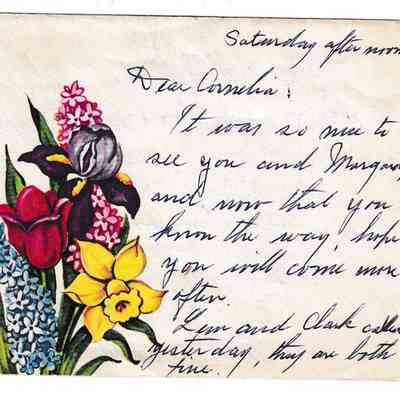 Saturday after noon
Dear Cornelia:
It was so nice to
see you and Margare
and now that you
know the way, hope
you will come more
often.
Lem and Clark calle
yesterday, they are both
fine.